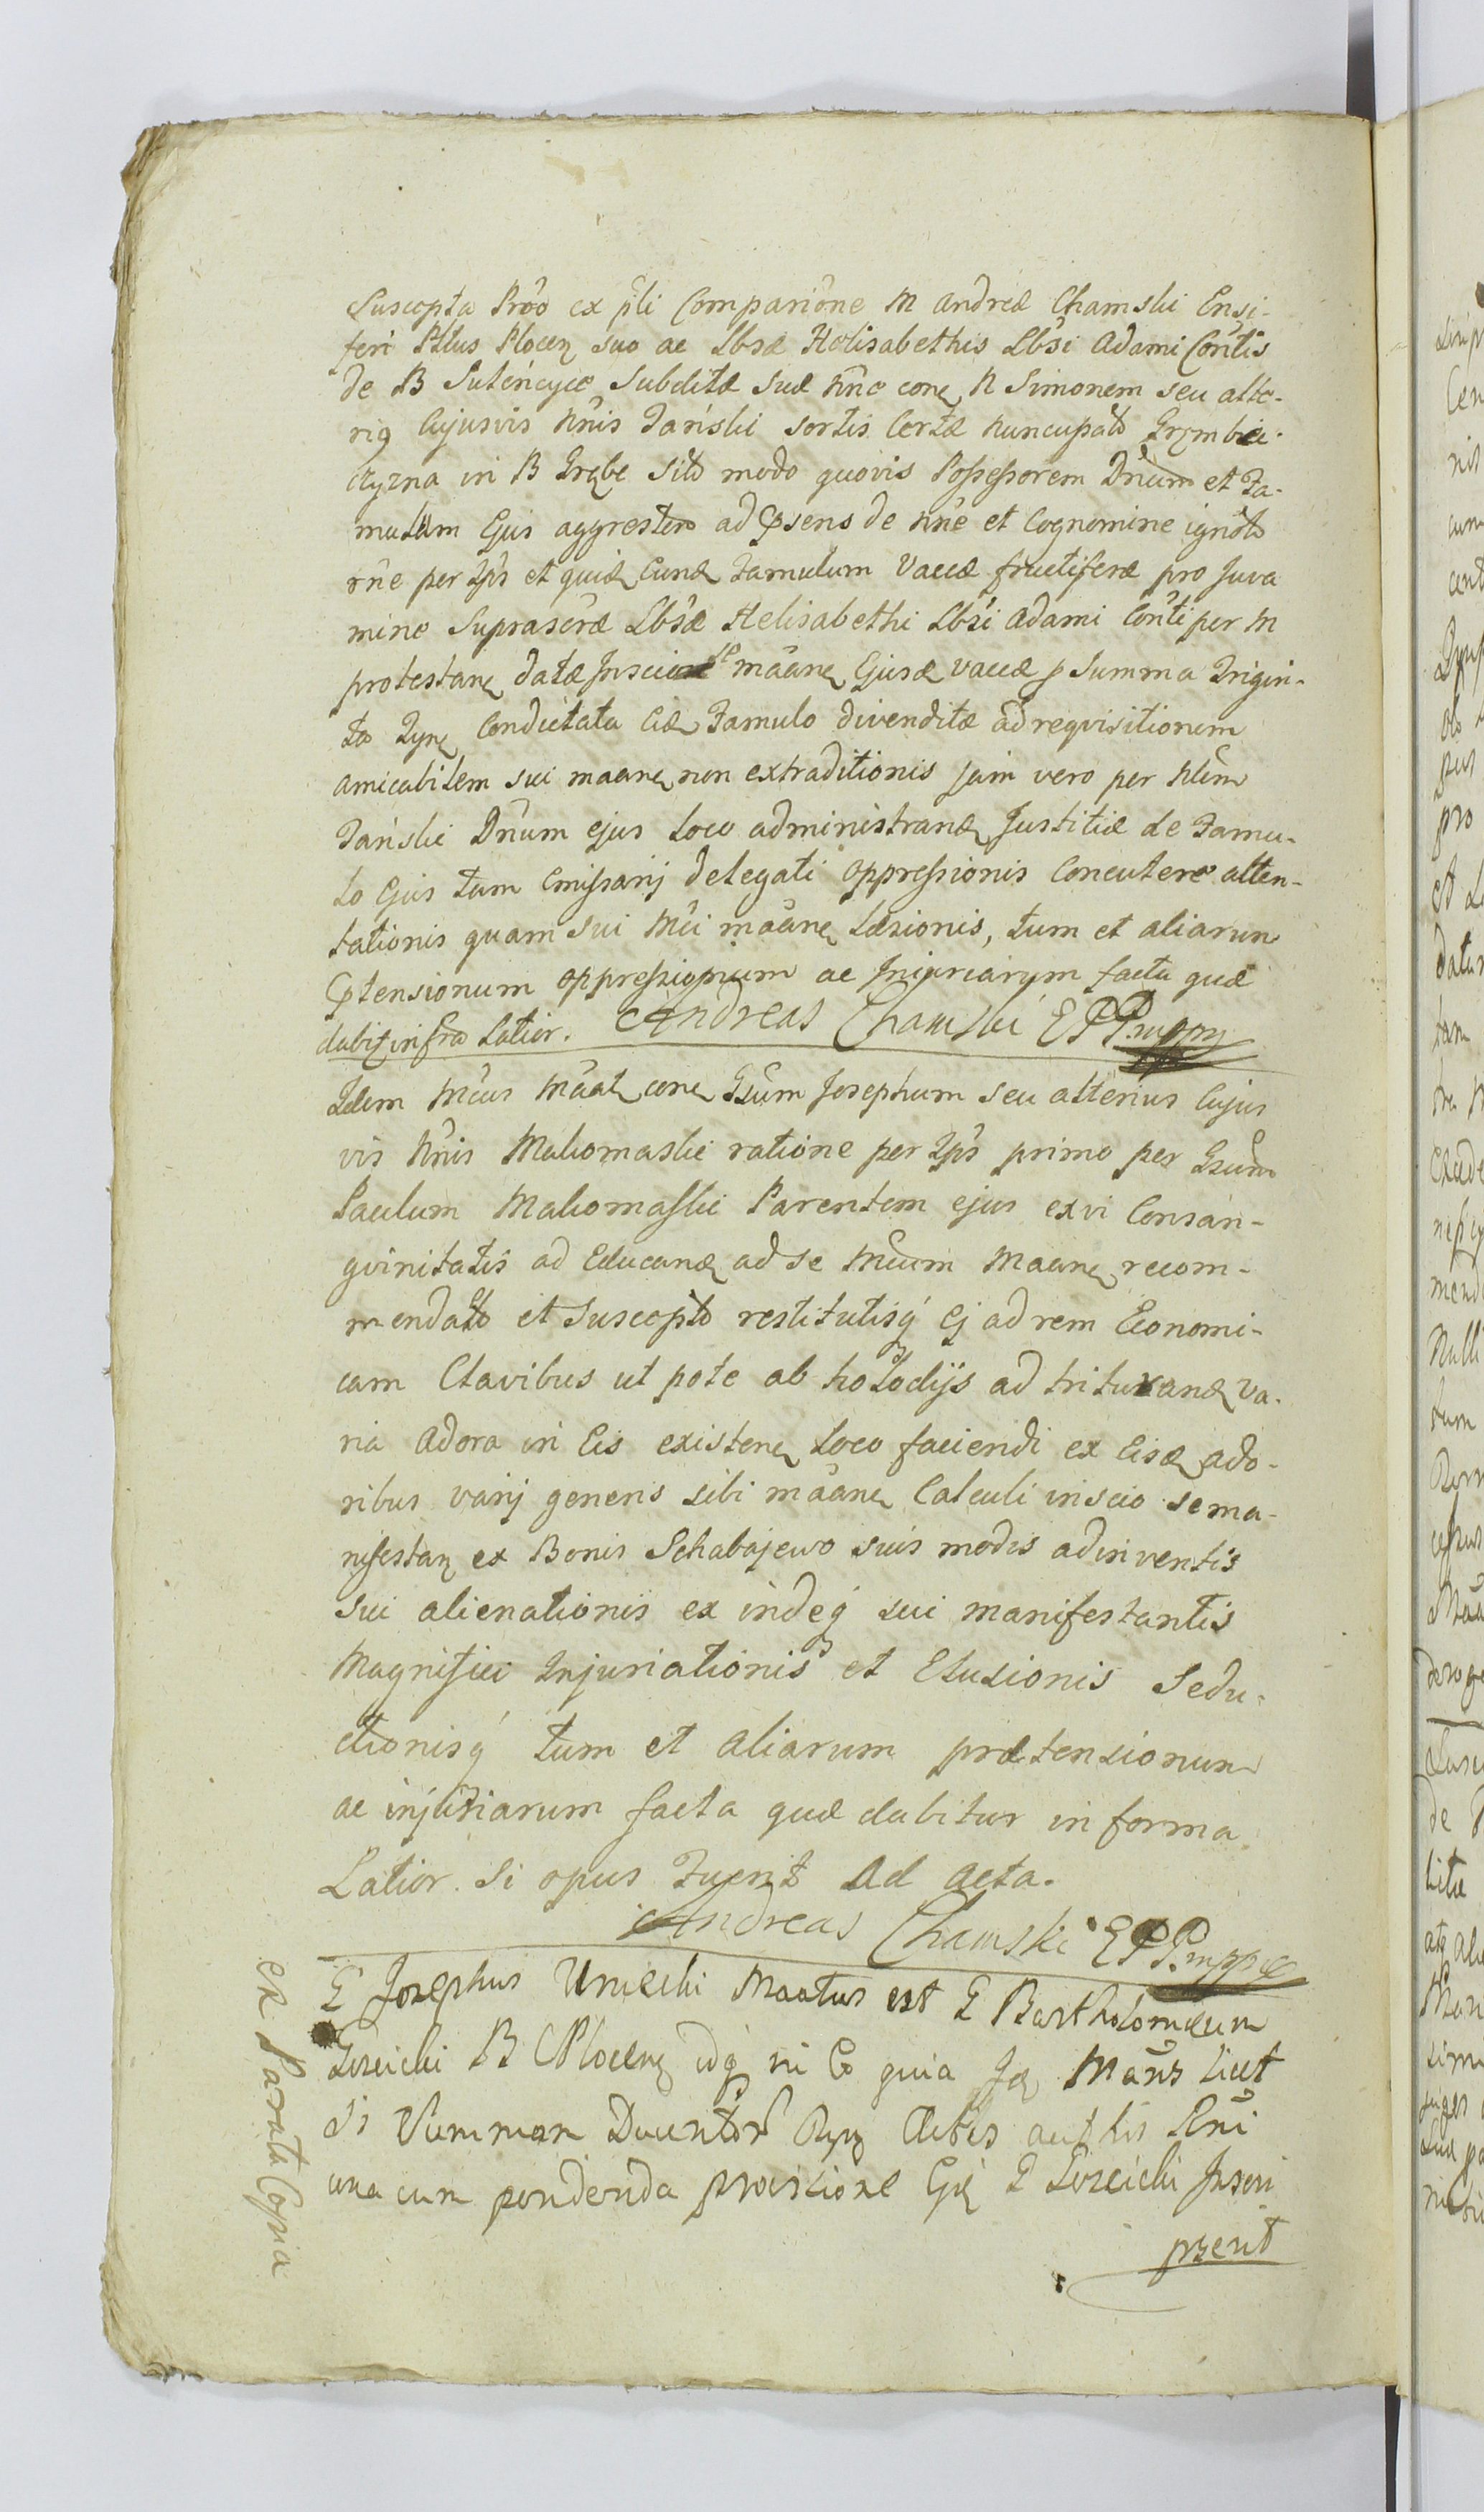 Suscepta Prõo ex p̃li Compariõne M Andreæ Chamski Ensi-
feri Pltus Plocen suo ac Lbsæ Helisabethis Lbsi Adami Cõntis
de B Suteńcyce Subditæ suæ nñe conę N Simonem seu alte-
rig Cujusvis Nñis Dański sortis Certæ nuncupatõ Grzmbci-
czyzna in B Grębe sitõ modo quovis Possessorem Dnum et Fa-
mulum Ejus aggrestem ad psens de nñe et Cognomine ignotõ
rñe per Ip̃s et quidę Eundę Famulum Vaccæ fructiferæ pro Juva
mine Suprascræ Lbsæ Helisabethi Lbsi Adami Cõnti per M
protestanę datæ Inscio se mãanę Ejusdę vaccæ p Summa Trigin-
ta Tynę Condictata Eidę Famulo divenditæ ad reqvisitionem
amicabilem sui maanę non extraditionis jam vero per Nlem
Dański Dnum ejus Loco administrandę Justitiæ de Famu-
lo Ejus tum Emissarij delegati oppressionis Concutere atten-
tationis quam sui Mci mãanę Læsionis, tum et aliarum
Ptensionum oppressionum ac Injuriarum facta quæ
dabit infra Latior. Andreas Chamski E P P mppr
Idem Mcus Mãat conę Gsum Josephum seu alterius Cujus
vis Nñis Makomaski ratione per Ip̃s primo per Gsum
Paulum Makomaski Parentem ejus ex vi Consan-
gvinitatis ad Educandę ad se Mcum Maanę recom-
mendatõ et Susceptõ restitutisq́ Ej ad rem Economi-
cam Clavibus ut pote ab horodijs ad triturandę va-
ria adora in Eis existenę Loco faciendi ex Eisdę ado-
ribus varij generis sibi mãanę Calculi inscio se ma-
nifestanę ex Bonis Schabajewo suis modis adinventis
sui alienationis ex indeq́ sui manifestantis
Magnifici Injuriationis et Elusionis Sedu-
ctionisq́ tum et aliarum prætensionum
ac injuriarum facta quæ dabitur in forma
Latior. Si opus Fuerit Ad Acta.
Andreas Chamski E P P mppr
G Josephus Umecki Maatus est G Bartholomæum
Gozdicki B C Plocenę idq́ in Eo quia Idę Mãns licet
si Summam Ducentõr Rynę Actis authis Sñi
una cum pendenda provisione Gdę G Gozdicki Inscri
pserit
ex Parata Copia